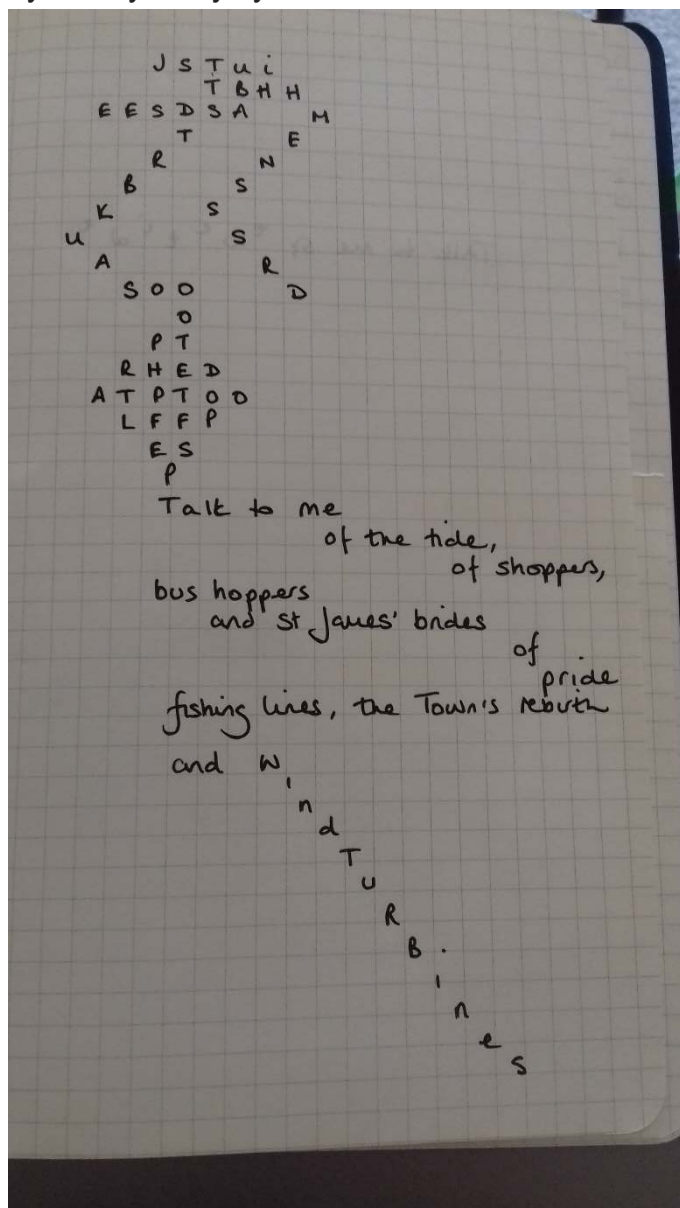 J S T u i
T B H H
E E S D S A M
T E
R N
B S
K S
u S
A R
S O O D
O
P T
R H E D
A T P T O O
L F F P
E S
P
Talk to me
of the tide,
of shoppers,
bus hoppers
and St James' brides
of
pride
fishing lines, the Town's rebirth
and W
i
n
d
T
u
R
B
i
n
e
s